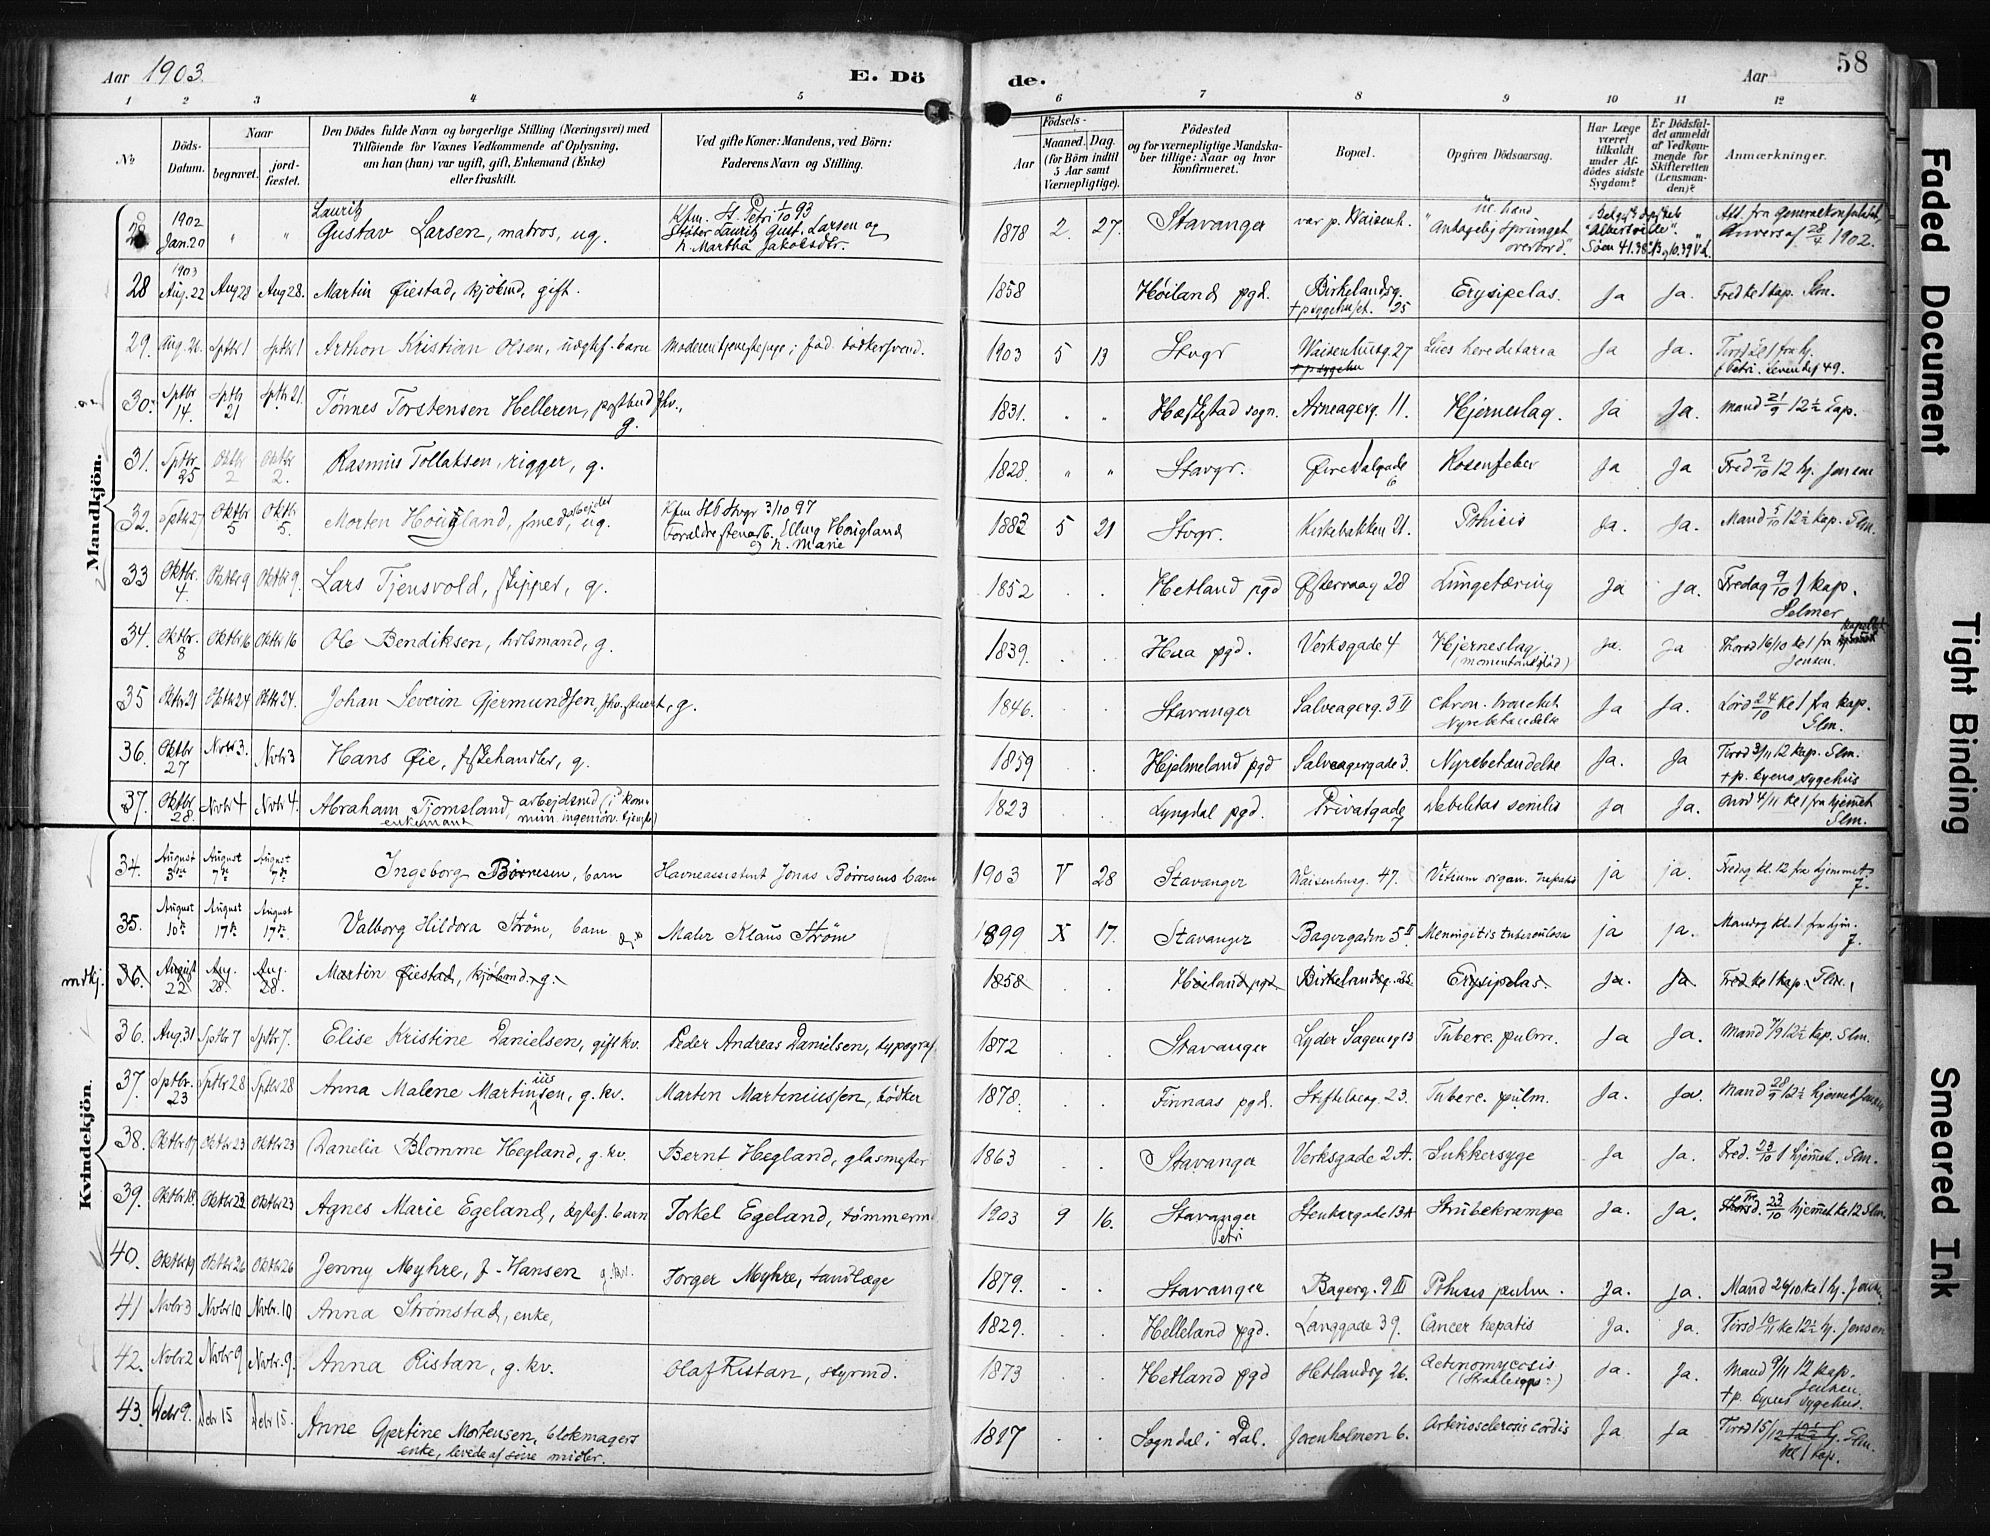 Aar 1903. E. Dö de. Aar 58
1 2 3 4 5 6 7 8 9 10 11 12
No Döds-Datum. Naar begravet. jordfæstet. Den Dödes fulde Navn og borgerlige Stilling (Næringsvei) med Tilföiende for Voxnes Vedkommende af Oplysning, om han (hun) var ugift, gift, Enkemand (Enke) eller fraskilt. Ved gifte Koner: Mandens, ved Börn: Faderens Navn og Stilling. Födsels- Aar Maaned. Dag. (for Börn indtil 5 Aar samt Værnepligtige). Födested og for værnepligtige Mandskaber tillige: Naar og hvor konfirmeret. Bopæl. Opgiven Dödsaarsag. Har Læge været tilkaldt under Afdödes sidste Sygdom? Er Dödsfaldet anmeldt af Vedkommende for Skifteretten (Lensmanden)? Anmærkninger.
Mandkjön.
1902 Jan. 20 " " Lauritz Gustav Larsen, matros, ug. Kfm. St. Petri 1/10 93 Støber Lauritz Gust. Larsen og h. Martha Jakobsdtr. 1878 2. 27. Stavanger var p. Waisenh. "Antagelig Sprunget overbord". "Albertville". Aft. fra Generalkonsulatet, Anvers af 28/4 1902.
28 1903 Aug. 22 Aug 28 Aug 28. Martin Øiestad, kjøbmd, gift. 1858 Höiland pgd. Birkelandsg. 25 † p sygehuset. Erysipelas. Ja Ja. Fred kl 1 kap. Slm.
29. Aug. 26. Sptbr 1 Sptbr 1 Arthon Kristian Olsen, uægtef. barn Moderen tjenestepige; fad. bødkersvend. 1903 5 13 Stvgr Waisenhusg. 27 † p sygehu Lues hereditaria Ja Ja.
30. Sptbr 14. Sptb 21 Sptb. 21. Tønnes Torstensen Helleren, postbud, g. 1831. . " Hæskestad sogn. Arneagerg. 11. Hjerneslag. Ja Ja. Mand 21/9 12 ½ kap.
31. Sptbr 25 Oktbr 2 Oktbr 2. Rasmus Tollaksen, rigger, g. 1828. " " Stavgr. Øvre Dalgade 6 Rosenfeber Ja Ja Fred 2/10 12 hj. Jensen
32. Sptb 27 Oktbr 5 Oktbr 5. Morten Hougland, smedarbejder, ug. Kfm Stvgr 3/10 97 Elling Hougland og h. Marie 1882 5 21 Stvgr. Kirkebakken 21. Pthisis Ja. Ja. Mand 5/10 12 ½ kap. Slm.
33 Oktbr. 4. Oktbr 9 Oktbr 9. Lars Tjensvold, skipper, g. 1852 . . Hetland pgd Østervaag 28 Lungetæring Ja Ja. Fredag 9/10 1 kap. Selmer
34. Oktbr. 8 Oktbr 16 Oktbr 16 Ole Bendiksen, husmand, g. 1839. . . Haa pgd. Verksgade 4 Hjerneslag (momentan død) Ja. Ja Thorsd 16/10 kl 1 fra kapellet Jensen.
35 Oktbr 21 Oktbr 24 Oktbr 24. Johan Severin Gjermundsen, g. 1846. . . Stavanger Salveagerg. 3 II Chron. bronchit Nyrebetændelse Ja Ja. Lörd 24/10 kl 1 fra kap. Slm.
36. Oktbr 27 Novbr 3. Novbr 3 Hans Øie, fiskehandler, g. 1859 . . Hjelmeland pgd Salveagergade 3. Nyrebetændelse Ja. Ja Tirsd 3/11 12 kap. Slm. † p. byens sygehus
37. Oktbr 28. Novbr 4 Novbr 4. Abraham Tjomsland, arbejdsmd (i kommun. ingeniörv. tjeneste) enkemand 1823 . . Lyngdal pgd. Privatgade 7 Debilitas senilis Ja Ja. Onsd 4/11 kl 1 fra hjemmet Slm.
Kvindekjön.
34. August 3die August 7de August 7de Ingeborg Börresen, barn Havneassistent Jonas Börresens barn 1903 V 28 Stavanger Waisenhusg. 47. Vitium organ. hepatis ja ja. Fredag kl. 12 fra hjemmet J.
35. August 10de August 17de August 17de Valborg Hildora Strøm, barn Maler Klaus Strøm 1899 X 17. Stavanger Bagergaden 5 II Meningitis tuberculosa ja ja. Mandag kl 1 fra hjm. J.
mdkj. 36. August 22 Aug. 28. Aug. 28. Martin Øiestad, kjøbmand, g. 1858 . . Höiland pgd. Birkelandsg. 25. Erysipelas. Ja. Ja Fred kl 1 kap. Slm.
36. Aug. 31 Sptbr 7 Sptbr 7. Elise Kristine Danielsen, gift kv. Peder Andreas Danielsen, typograf 1872 . . Stavanger Lyder Sagensg 13 Tuberc. pulm. Ja Ja. Mand 7/9 12 ½ kap. Slm.
37. Sptbr. 23 Sptbr 28 Sptbr 28 Anna Malene Martiniussen, g. kv. Martin Martiniussen, bødker 1878. . . Finnaas pgd. Stiftelsesg. 23. Tuberc. pulm. Ja. Ja. Mand 28/9 12 ½ hjemmet Jensen
38. Oktbr 17 Oktbr 23 Oktbr 23 Danelia Blomme Hegland, g. kv. Bernt Hegland, glasmester 1863 . . Stavanger Verksgade 2 A. Sukkersyge Ja Ja. Fred. 23/10 1 hjemmet. Slm.
39. Oktbr 18. Oktbr 23 Oktbr 23 Agnes Marie Egeland, ægtef. barn Torkel Egeland, tømmerm 1903 9 16. Stavanger Petri Stenkargade 13 A Strubekrampe Ja. Ja. Thorsd. Fr 23/10 hjemmet kl 12 Slm.
40. Oktbr 19 Oktbr 26 Oktbr 26 Jenny Myhre, f. Hansen g. kv. Torger Myhre, tandlæge 1879. . . Stavanger Bagerg. 9 III Pthisis pulm. Ja. Ja. Mand 26/10 kl 1 hj. Jensen
41 Novbr 3 Novbr 10 Novbr. 10 Anna Strømstad, enke, 1829. . . Helleland pgd. Langgade 39. Cancer hepatis Ja. Ja. Tirsd 10/11 kl 12 ½ hj. Jensen
42. Novbr 2 Novbr 9 Novbr. 9. Anna Ristan, g. kv. Olaf Ristan, styrmd. 1873 . . Hetland pgd Hetlandsg 26. Actinomycosis Ja. Ja. Mand 9/11 12 kap. Jensen. † p. byens sygehus.
43. Debr 9. Debr 15 Debr 15. Anne Gjertine Mortensen, blokmagers enke, levede af sine midler. 1817 . . Sogndal i Dal. Jorenholmen 6. Arteriosclerosis cordis Ja Ja Tirsd 15/12 12 ½ hj. Slm. kl 1 kap.
Faded Document
Tight Binding
Smeared Ink